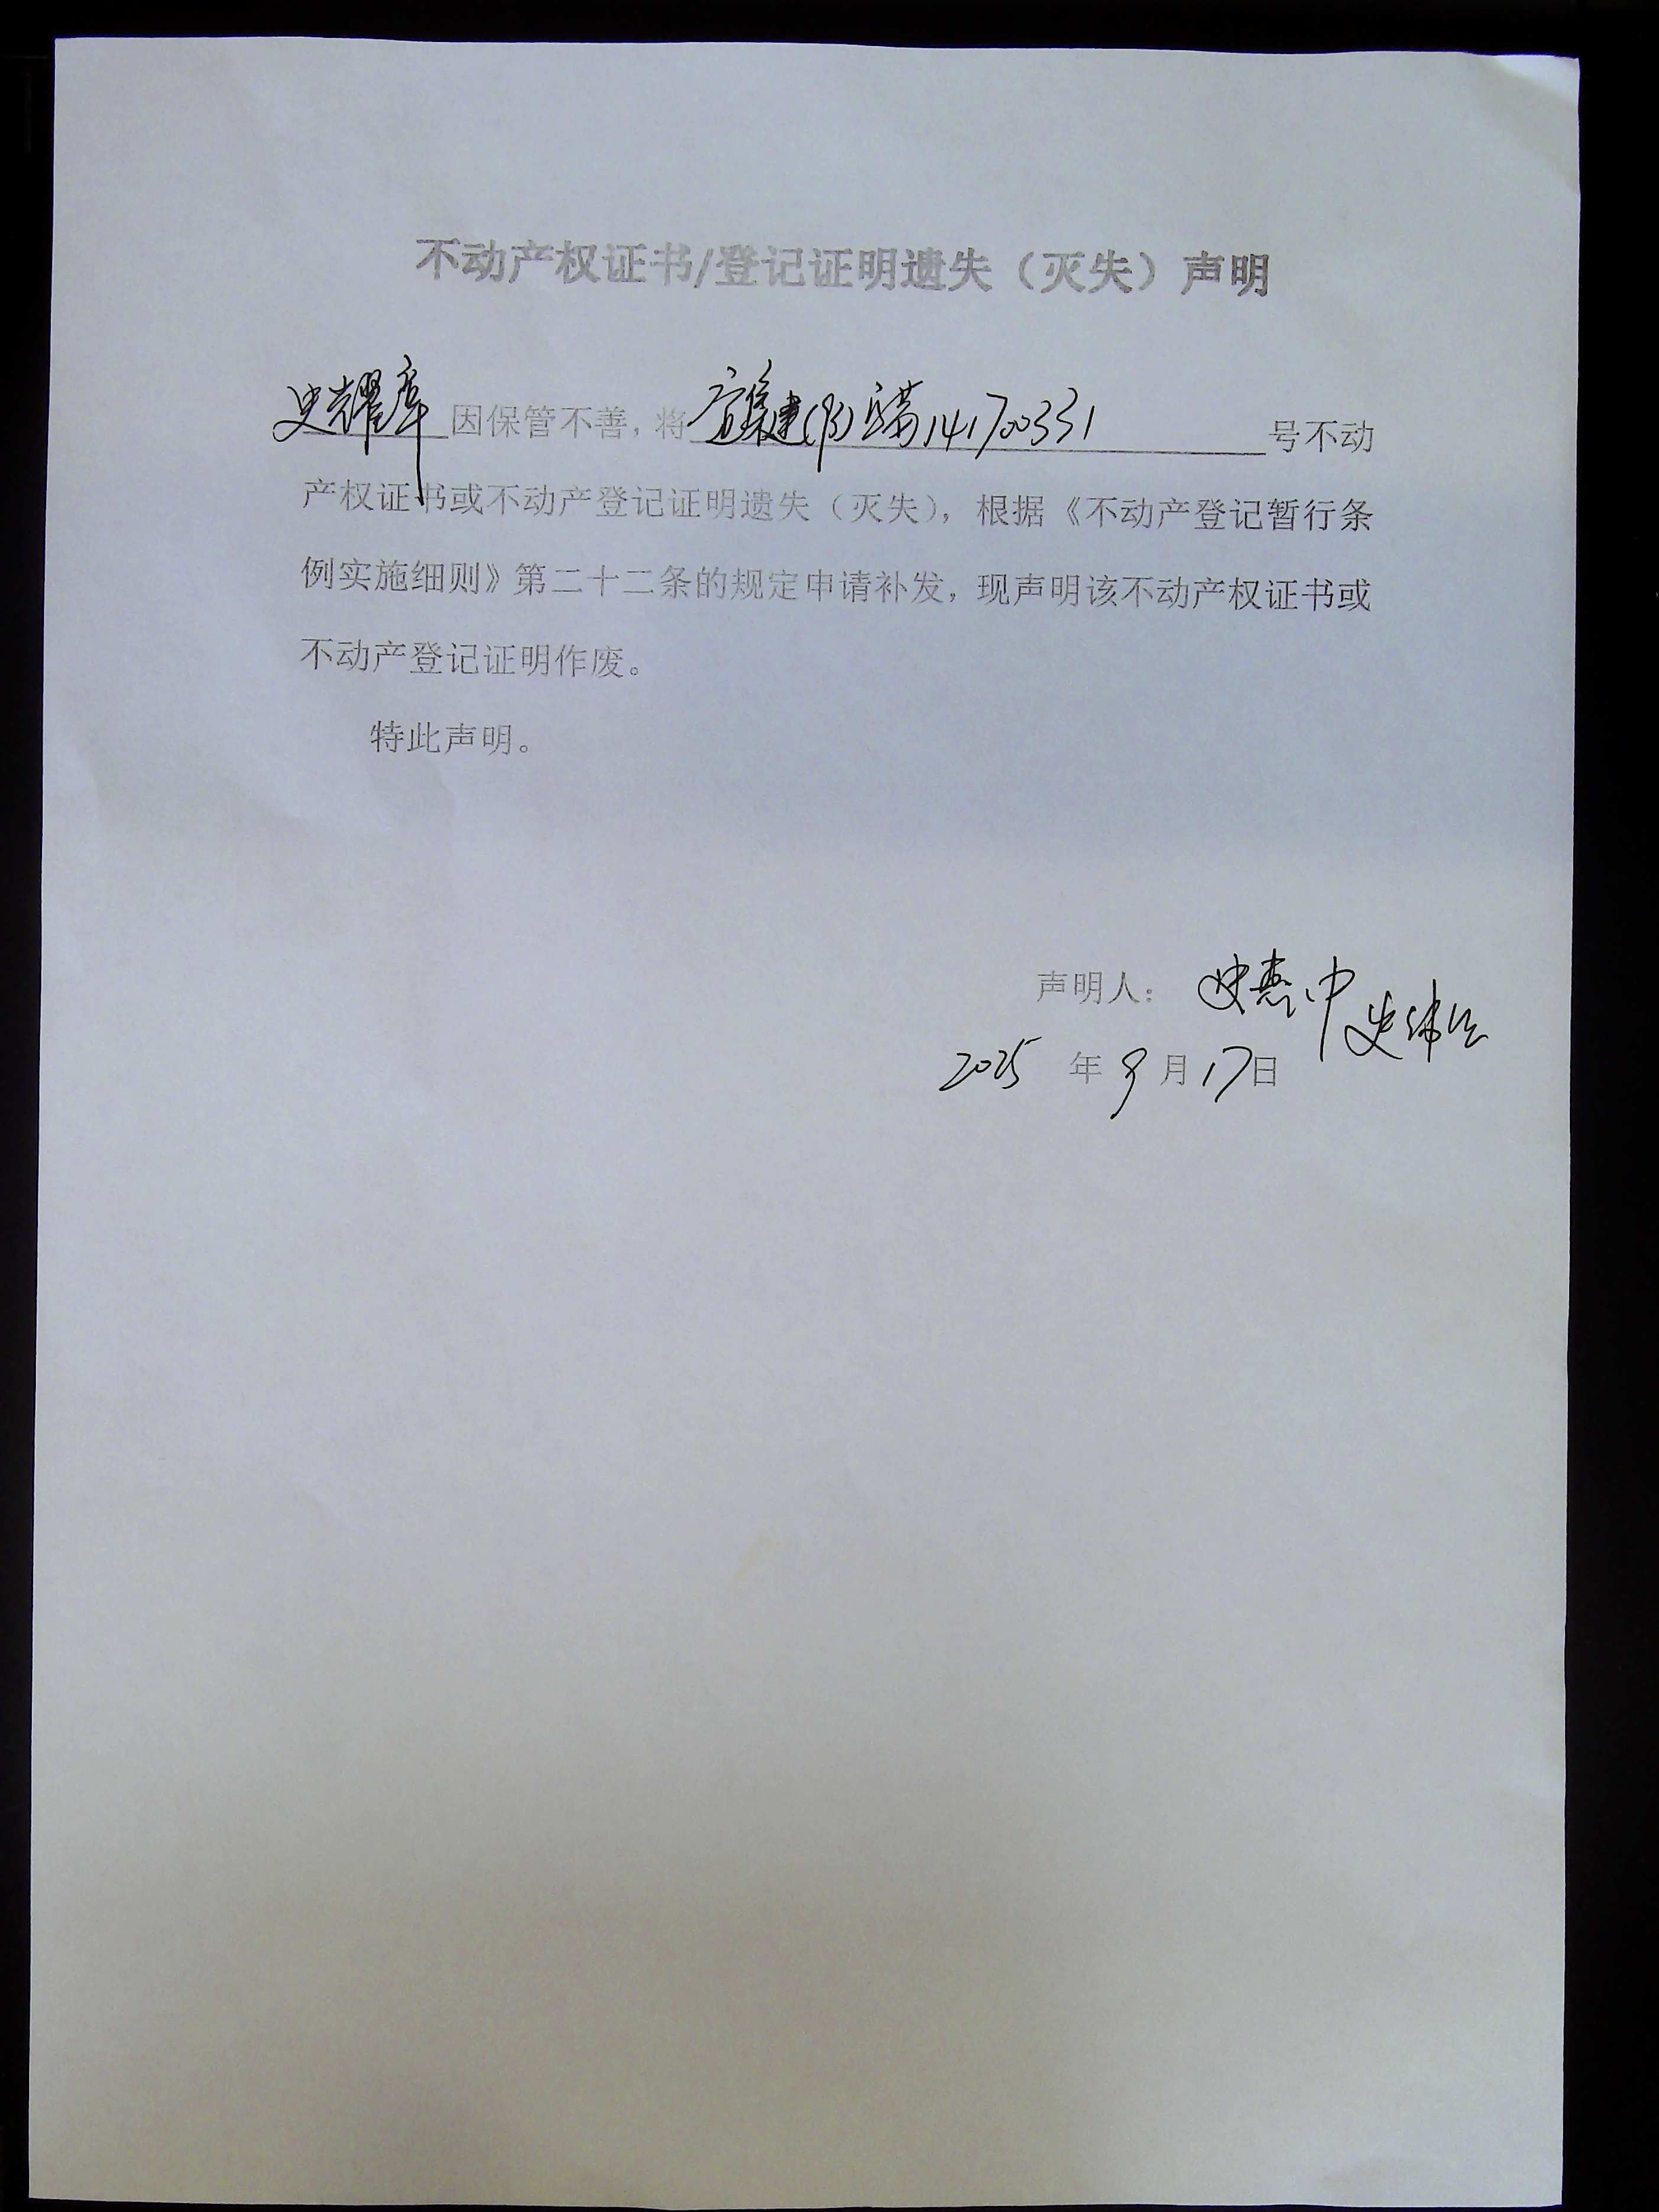 不动产权证书/登记证明遗失（灭失）声明
史耀 因保管不善，将 集建(93) 141700331 号不动
产权证书或不动产登记证明遗失（灭失），根据《不动产登记暂行条
例实施细则》第二十二条的规定申请补发，现声明该不动产权证书或
不动产登记证明作废。
特此声明。
声明人： 史惠中
史
2025 年 9 月 17 日